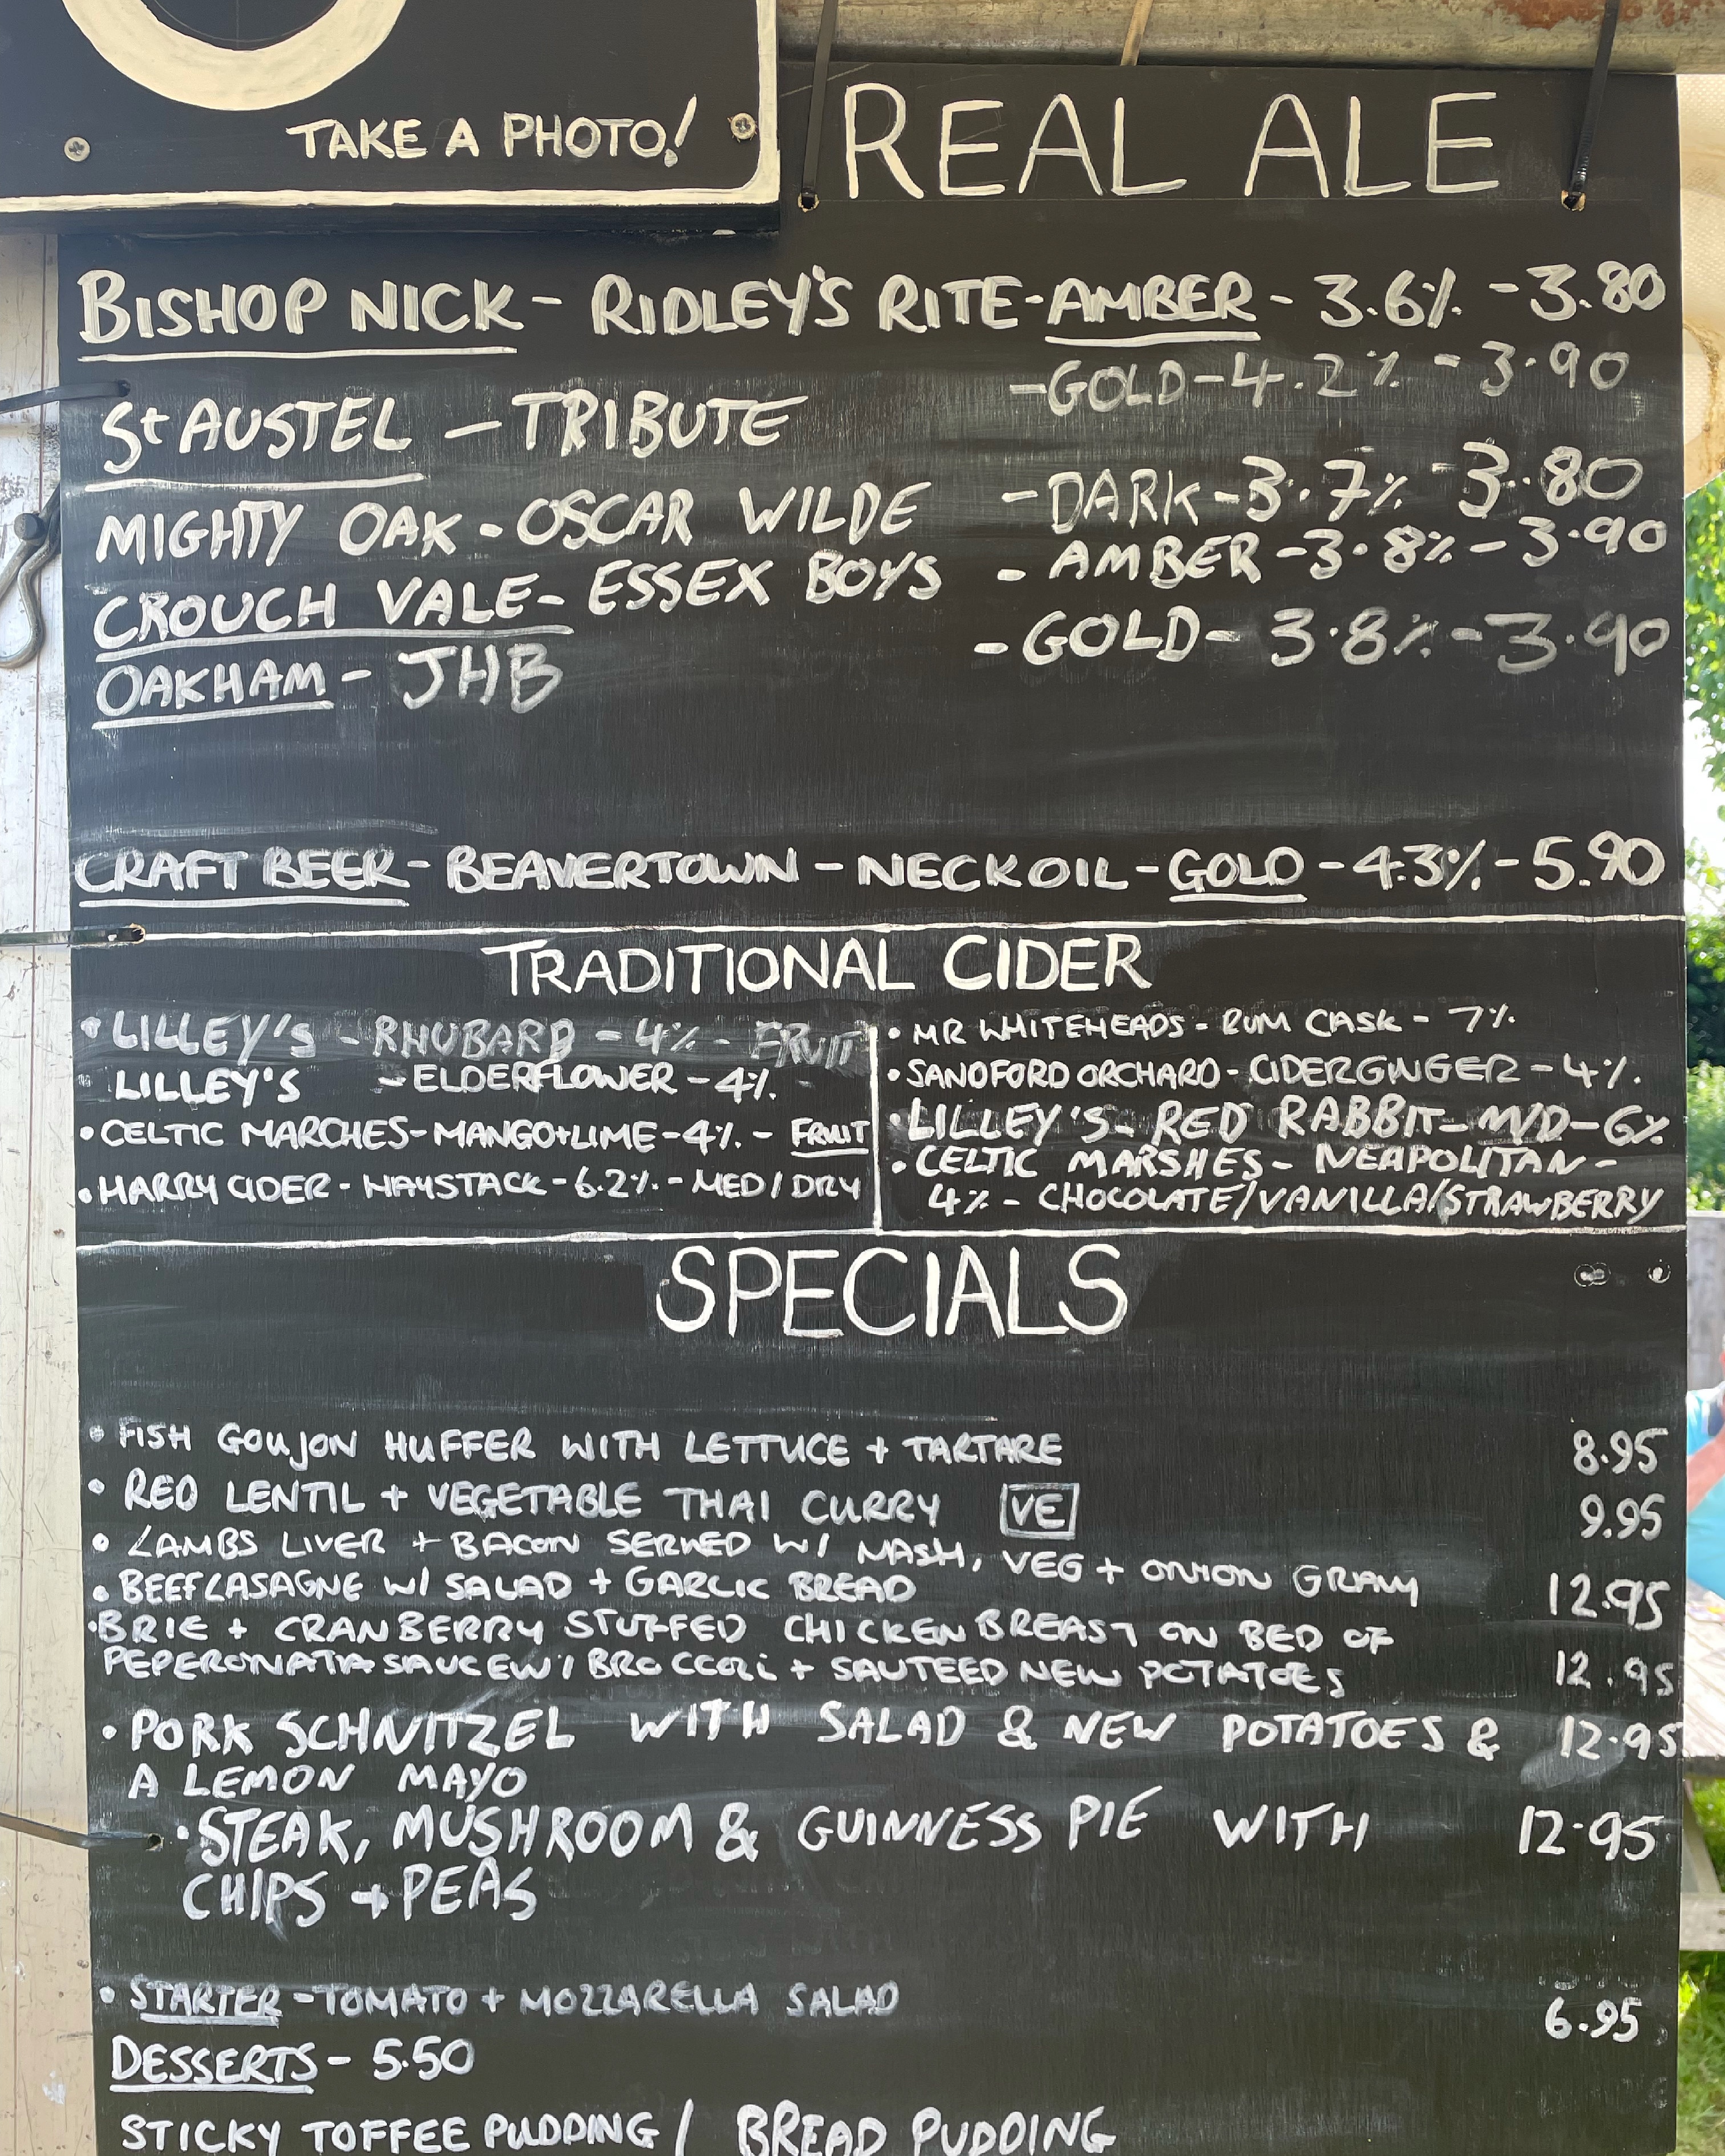 TAKE A PHOTO!
REAL ALE
BISHOP NICK - RIDLEY'S RITE - AMBER - 3.6% - 3.80
St AUSTEL - TRIBUTE - GOLD - 4.2% - 3.90
MIGHTY OAK - OSCAR WILDE - DARK - 3.7% - 3.80
CROUCH VALE - ESSEX BOYS - AMBER - 3.8% - 3.90
OAKHAM - JHB - GOLD - 3.8% - 3.90
CRAFT BEER - BEAVERTOWN - NECK OIL - GOLD - 4.3% - 5.90
TRADITIONAL CIDER
• LILLEY'S - RHUBARB - 4% - FRUIT
LILLEY'S - ELDERFLOWER - 4% -
• CELTIC MARCHES - MANGO + LIME - 4% - FRUIT
• HARRY CIDER - HAYSTACK - 6.2% - MED / DRY
• MR WHITEHEADS - RUM CASK - 7%
• SANDFORD ORCHARD - CIDERGINGER - 4%.
• LILLEY'S - RED RABBIT - M/D - 6%
• CELTIC MARSHES - NEAPOLITAN -
4% - CHOCOLATE/VANILLA/STRAWBERRY
SPECIALS
• FISH GOUJON HUFFER WITH LETTUCE + TARTARE 8.95
• RED LENTIL + VEGETABLE THAI CURRY VE 9.95
• LAMBS LIVER + BACON SERVED W/ MASH, VEG + ONION GRAVY 12.95
• BEEF LASAGNE W/ SALAD + GARLIC BREAD
• BRIE + CRANBERRY STUFFED CHICKEN BREAST ON BED OF
PEPERONATA SAUCE W/ BROCCOLI + SAUTEED NEW POTATOES 12.95
• PORK SCHNITZEL WITH SALAD & NEW POTATOES & 12.95
A LEMON MAYO
• STEAK, MUSHROOM & GUINNESS PIE WITH 12.95
CHIPS + PEAS
• STARTER - TOMATO + MOZZARELLA SALAD 6.95
DESSERTS - 5.50
STICKY TOFFEE PUDDING / BREAD PUDDING